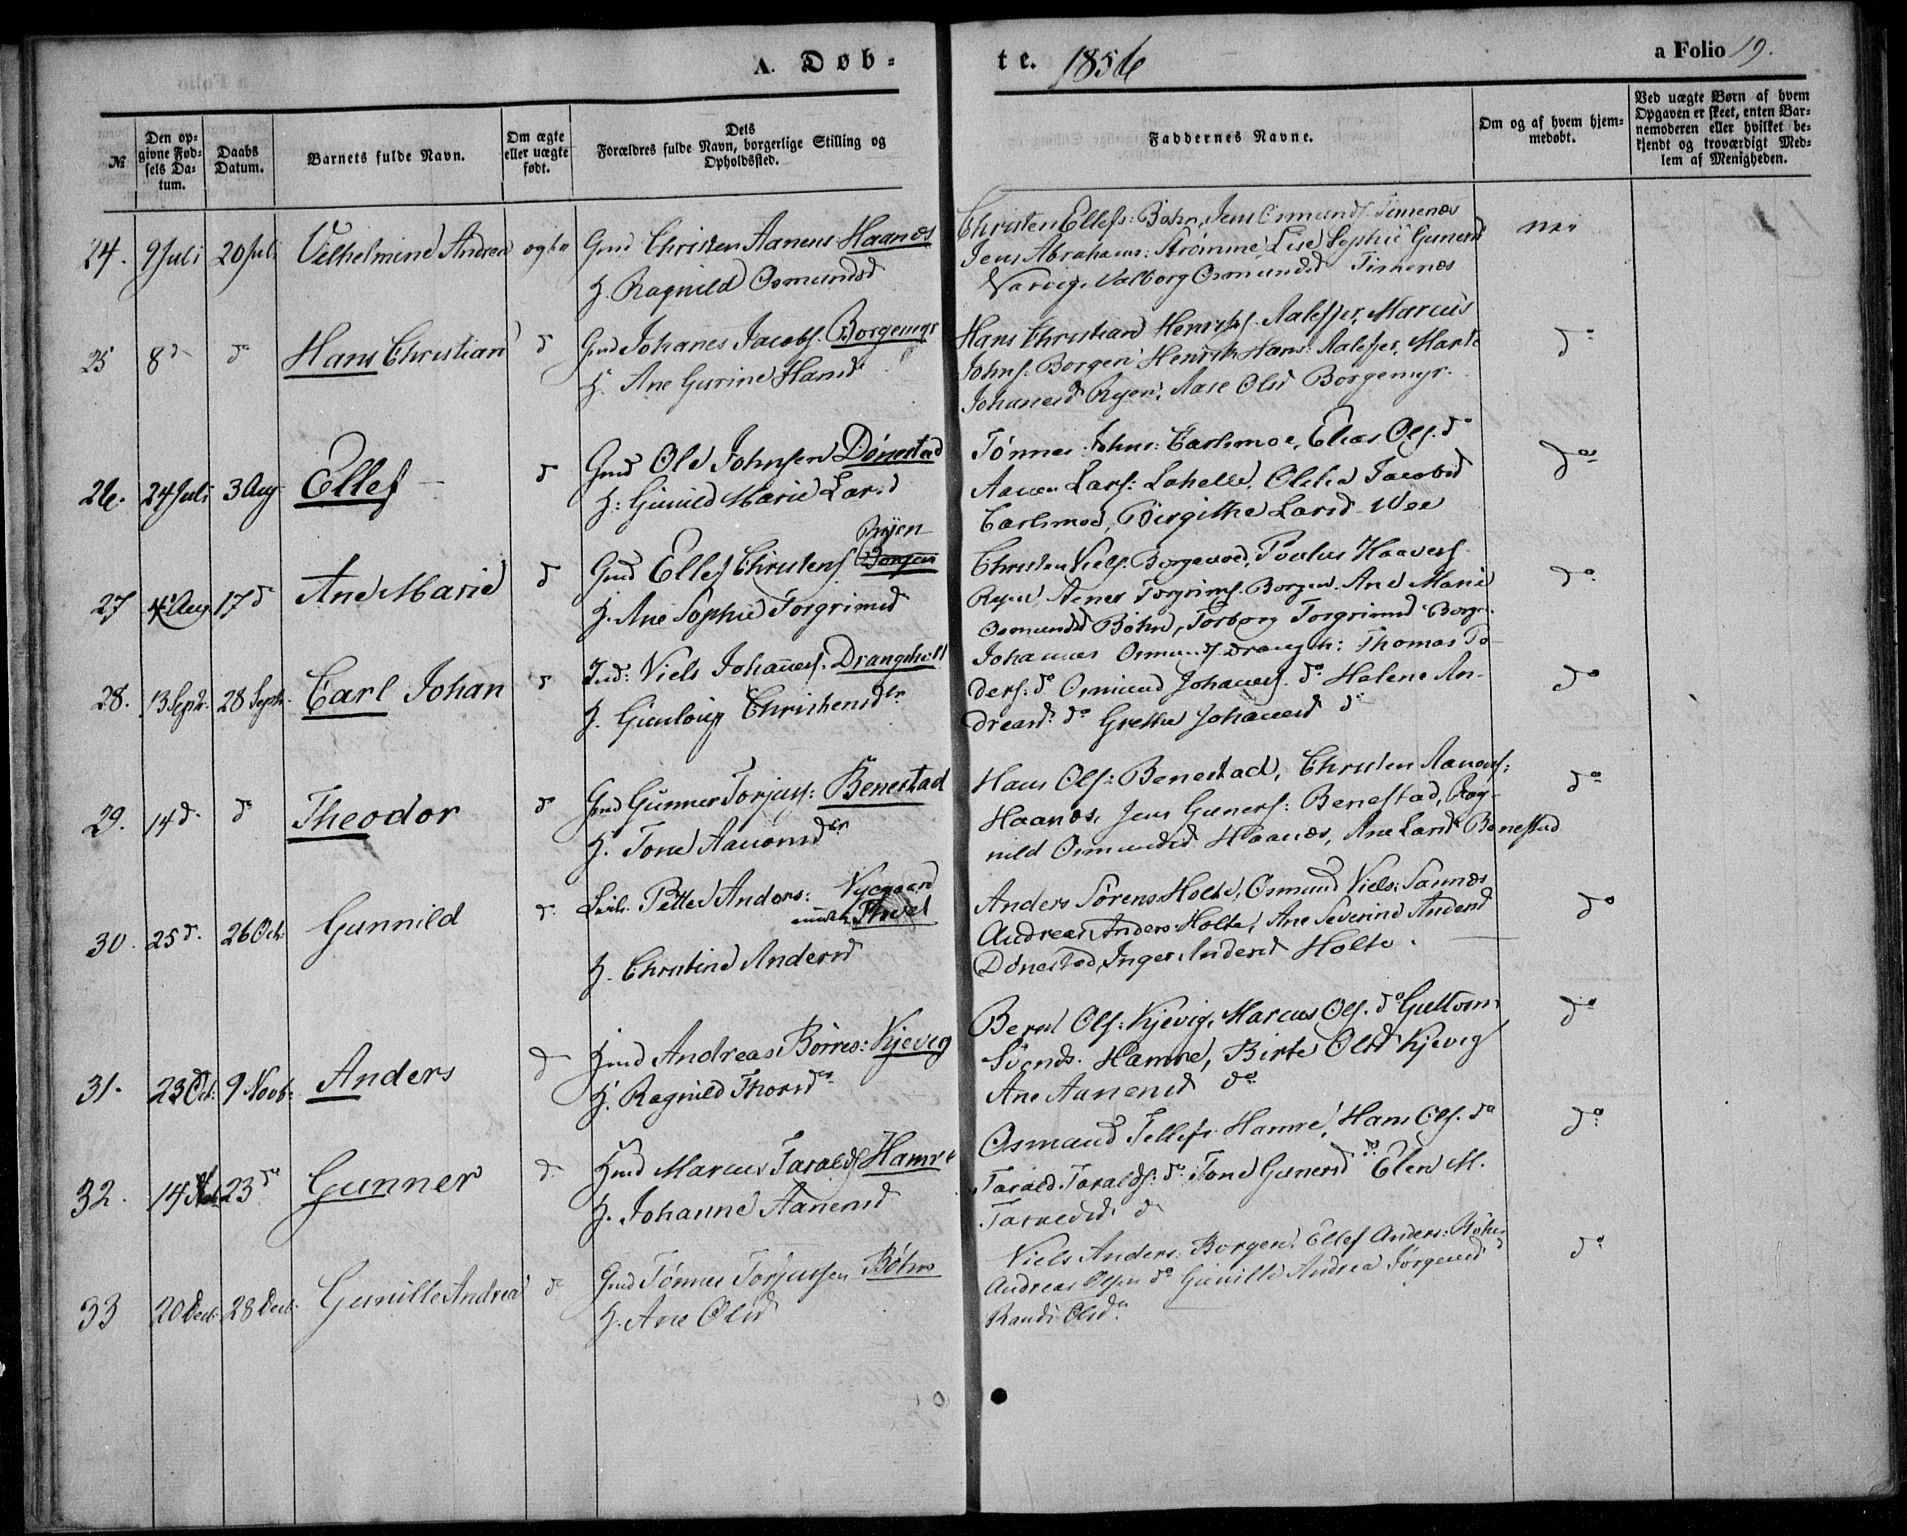 A. Døb-
te. 1856
a Folio 19.
№
Den opgivne Fødsels Datum.
Daabs Datum.
Barnets fulde Navn.
Om ægte eller uægte født.
Dets Forældres fulde Navn, borgerlige Stilling og Opholdssted.
Faddernes Navne.
Om og af hvem hjemmedøbt.
Ved uægte Børn af hvem Opgaven er skeet, enten Barnemoderen eller hvilket bekjendt og troværdigt Medlem af Menigheden.
24. 9 Juli 20 Juli Vilhelmine Andrea ægte Gmd Christen Aanens Haanæs
H. Ragnild Osmundsd
Christen Ellefs: Bøhn, Jens Osmunds Timenæs
Jens Abrahams: Strømme, Lise Sophie Gunersd
Varvig, Valborg Osmundsd Timenæs
nei
25 8 d do Hans Christian d Gmd Johanes Jacobs. Borgemyr
H. Ane Gurine Hansd
Hans Christian Henriks. Aalefjær, Marcus
Johns. Borgen Henrik Hans: Aalefjer, Marte
Johanesd Ryen, Aase Olsd Borgemyr.
do
26. 24 Juli 3 Aug Ellef d Gmd Ole Johnsen Dønestad
H: Gunild Marie Larsd
Tønnes Johns: Carlsmoe, Elias Ols. do
Aanen Lars: Lahelle, Jacobsd
Carlsmoe, Birgithe Larsd Wee
do
27 4 Aug 17 d Ane Marie d Gmd Ellef Christens. Borgen Ryen
H. Ane Sophie Torgrimsd
Christen Niels. Borgevoe, Poulus Haavers.
Ryen, Aenes Torgrims. Borgen. Ane Marie
Osmundsd Bøhn, Torborg Torgrimsd Borgen
do
28. 13 Sept. 28 Septb. Carl Johan d Ind: Niels Johannes. Drangsholt
H. Gunloug Christensdtr
Johannes Osmunds. Drangsh: Thomas To-
ders. do Osmund Johanes. do Helene An-
dreasd. do Grethe Johanesd do
do
29. 14 d. do Theodor do Gmd Gunner Torjus: Benestad
H. Tone Aanonsdtr
Hans Ols: Benestad, Christen Aanens:
Haanæs, Jens Guners: Benestad, Rag-
nild Osmundsd Haanæs, Ane Larsd Benestad
do
30. 25 d. 26 Octb. Gunnild d. Petter Anders: Nygaard
H. Christine Andersd
Anders Sørens Holte, Osmund Niels: Sannæs
Andreas Anders: Holte, Ane Severine Andersd
Dønestad, Inger Andersd Holte.
do
31. 23 Oct: 9 Novb: Anders d Hmd Andreas Børres: Kjevig
H. Ragnild Thorsdr
Bernt Ols: Kjevig, Marcus Ols. do Guttorm
Svends. Hamre, Birte Olsd Kjevig
Ane Aanensd do
do
32. 14 23 do Gunner d. Hmd Marcus Taralds Hamre
H. Johanne Aanensd
Osmund Tellefs Hamre, Hans Ols. do
Tarald Taralds. do Tone Gunersd do Elen M.
Taraldsd do
do
33 20 Decb. 28 Decb. Gunille Andrea do Gmd Tønnes Torjussen Bøhn
H. Ane Olsd
Niels Anders: Borgen, Ellef Anders: Bøhn
Andreas Olsen do Gunille Andrea Jørgensd
Randi Olsdr.
do